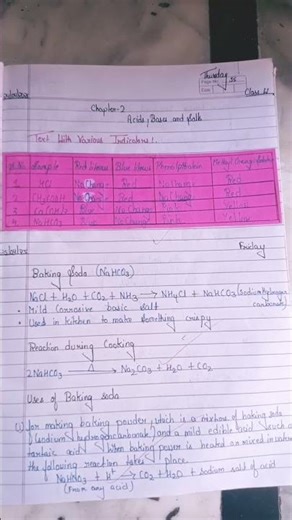 Thursday
Class 10
Chapter-2
Acids, Bases and Salts
Test With Various Indicators:
Sr.No. Sample Red Litmus Blue Litmus Phenolphthalein Methyl Orange
1. HCl No Change Red Red
2. CH3COOH No Change Red No Change Red
3. Ca(OH)2 Blue No Change Pink Yellow
4. NaHCO3 Blue No Change Pink Yellow
Friday
Baking Soda (NaHCO3)
NaCl + H2O + CO2 + NH3 → NH4Cl + NaHCO3 (Sodium hydrogen
carbonate)
• Mild Corrosive basic salt
• Used in kitchen to make something crispy
Reaction during Cooking
2NaHCO3 Δ→ Na2CO3 + H2O + CO2
Uses of Baking soda
(i) For making baking powder, which is a mixture of baking soda
(sodium hydrogencarbonate) and a mild edible acid such as
tartaric acid. When baking power is heated or mixed in water
the following reaction takes place.
NaHCO3 + H+ → CO2 + H2O + sodium salt of acid
(From any acid)